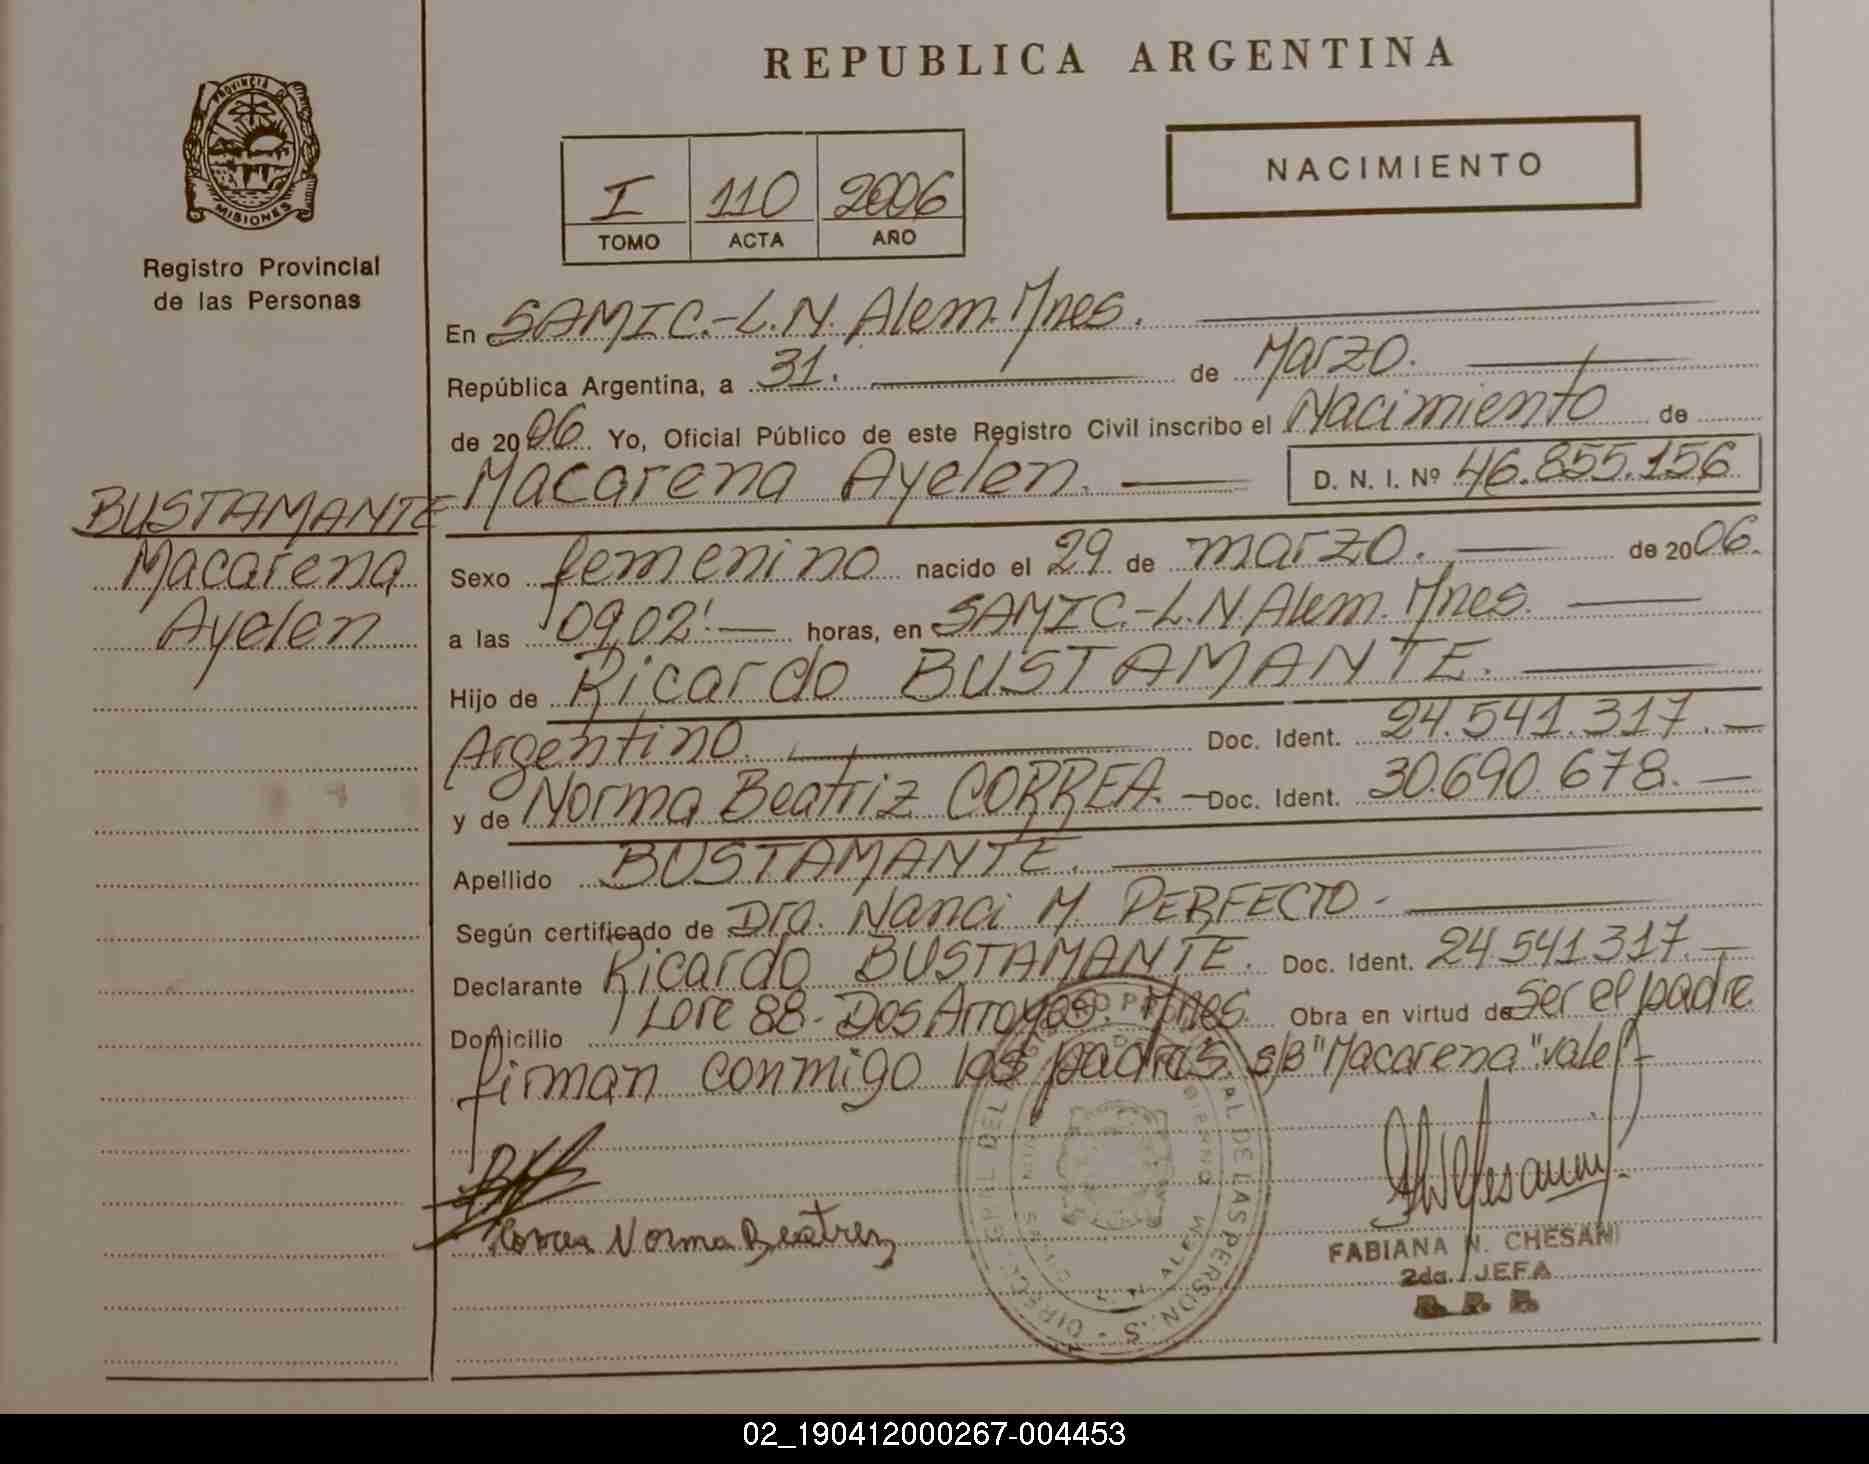 REPUBLICA ARGENTINA
PROVINCIA DE
MISIONES
Registro Provincial
de las Personas
NACIMIENTO
I 110 2006
TOMO ACTA AÑO
En SAMIC.-L.N. Alem. Mnes.
República Argentina, a 31. de Marzo.
de 2006. Yo, Oficial Público de este Registro Civil inscribo el Nacimiento de
Macarena Ayelen. D. N. I. Nº 46.855.156
BUSTAMANTE
Macarena
Ayelen
Sexo femenino nacido el 29 de marzo. de 2006.
a las 09,02' horas, en SAMIC.-L.N. Alem. Mnes.
Hijo de Ricardo BUSTAMANTE.
Argentino. Doc. Ident. 24.541.317.
y de Norma Beatriz CORREA. Doc. Ident. 30.690.678.
Apellido BUSTAMANTE.
Según certificado de Dra. Nanci M. PERFECTO-
Declarante Ricardo BUSTAMANTE. Doc. Ident. 24.541.317.
Domicilio Lote 88-Dos Arroyos. Mnes. Obra en virtud de Ser el padre
firman conmigo los padres. s/b "Macarena" vale.-
Norma Beatriz
FABIANA N. CHESANI
2da. JEFA
R. P. P.
02_190412000267-004453